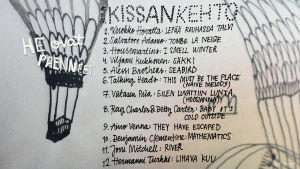 KISSANKEHTO
HE OVAT
PAENNEET
1. Vuokko Hovatta: LEPÄÄ RAUHASSA TALVI
2. Salvatore Adamo: TOMBE LA NEIGE
3. Housemartins: I SMELL WINTER
4. Viljami Kukkonen: SÄKKI
5. Alessi Brothers: SEABIRD
6. Talking Heads: THIS MUST BE THE PLACE
(NAIVE MELODY)
7. Ville: EILEN LUVATTIIN LUNTA
(HUOMENNA)
8. Ray Charles & Betty Carter: BABY IT'S
COLD OUTSIDE
9. Aino Venna: THEY HAVE ESCAPED
10. Benjamin Clementine: MATHEMATICS
11. Joni Mitchell: RIVER
12. Hermanni Turkki: LIHAVA KUU